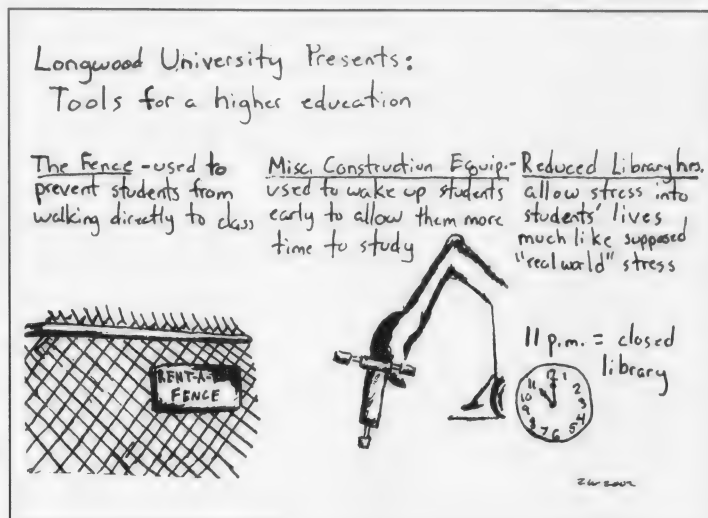 Longwood University Presents:
Tools for a higher education
The Fence - used to
prevent students from
walking directly to class
Misc. Construction Equip.-
used to wake up students
early to allow them more
time to study
Reduced Library hrs.
allow stress into
students' lives
much like supposed
"real world" stress
RENT-A-
FENCE
11 p.m. = closed
library
12
1
2
3
4
5
6
7
8
9
10
11
ZW 2002